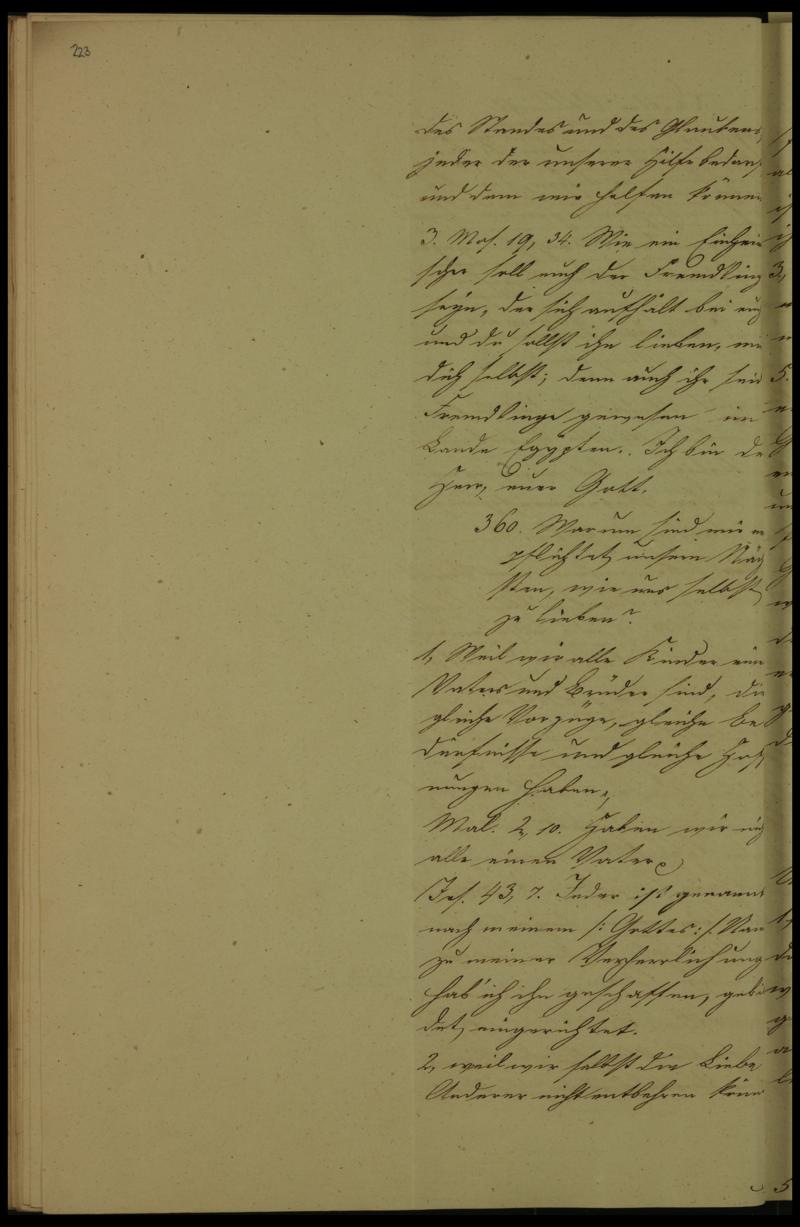 223
des Standes und des Glaubens,
jeder der unserer Hilfe bedarf
und dem wir helfen können
3. Mos. 19, 34. Wie ein Einhei
scher soll euch der Fremdling
seyn, der sich aufhält bei euch
und du sollst ihn lieben, wie
dich selbst; denn auch ihr seid
Fremdlinge gewesen im
Lande Egypten. Ich bin der
Herr, euer Gott.
360. Warum sind wir ver
pflichtet, unsern Näch
sten, wie uns selbst
zu lieben?
1, Weil wir alle Kinder eines
Vaters und Brüder sind, die
gleiche Vorzüge, gleiche Be
dürfnisse und gleiche Hoff
nungen haben,
Mal. 2, 10. Haben wir nicht
alle einen Vater
Jes. 43, 7. Jeder ist genannt
nach meinem /: Gottes :/ Nam
zu meiner Verherrlichung
hab' ich ihn geschaffen, gebil
det, eingerichtet.
2, weil wir selbst die Liebe
Anderer nicht entbehren könn